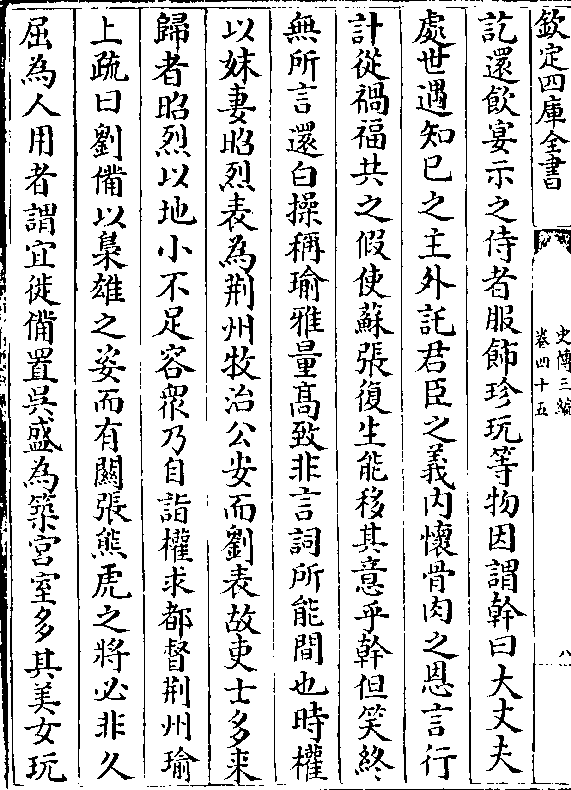 欽定四庫全書
史傳三編
卷四十五
八
訖還飲宴示之侍者服飾珍玩等物因謂幹曰大丈夫
處世遇知已之主外託君臣之義内懷骨肉之恩言行
計從禍福共之假使蘇張復生能移其意乎幹但笑終
無所言還白操稱瑜雅量髙致非言詞所能間也時權
以妹妻昭烈表為荆州牧治公安而劉表故吏士多来
歸者昭烈以地小不足容衆乃自詣權求都督荆州瑜
上疏曰劉備以梟雄之姿而有關張熊虎之將必非久
屈為人用者謂宜徙備置吳盛為築宮室多其美女玩